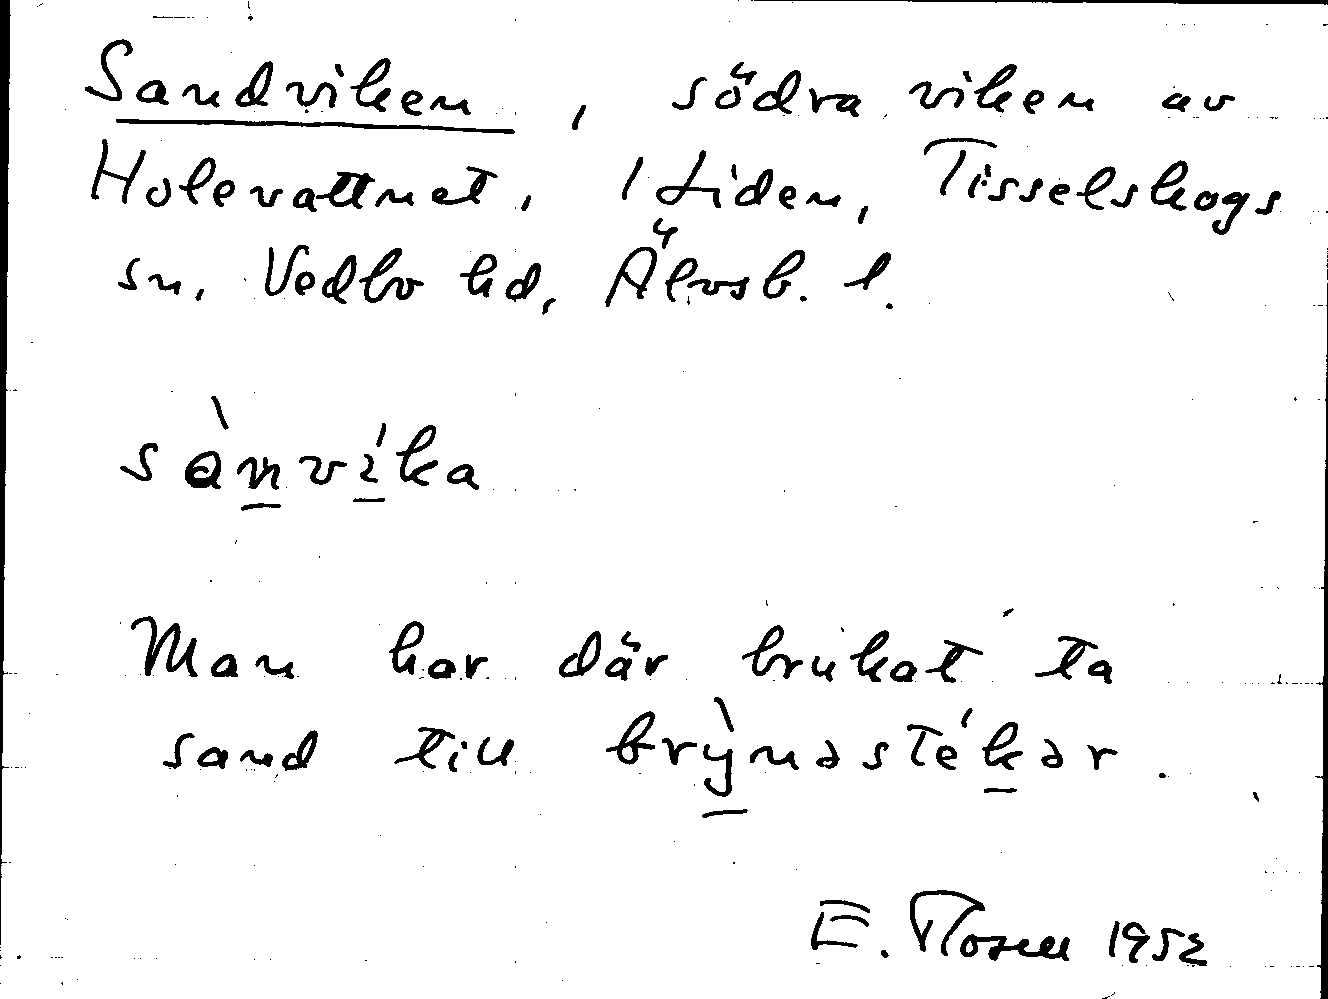 Sandviken, södra viken av
Holevattnet, Liden, Tisselskogs
sn, Vedbo hd, Älvsb. l.
sànvíka
Man har där brukat ta
sand till brỳnəstékər.
E. 1952